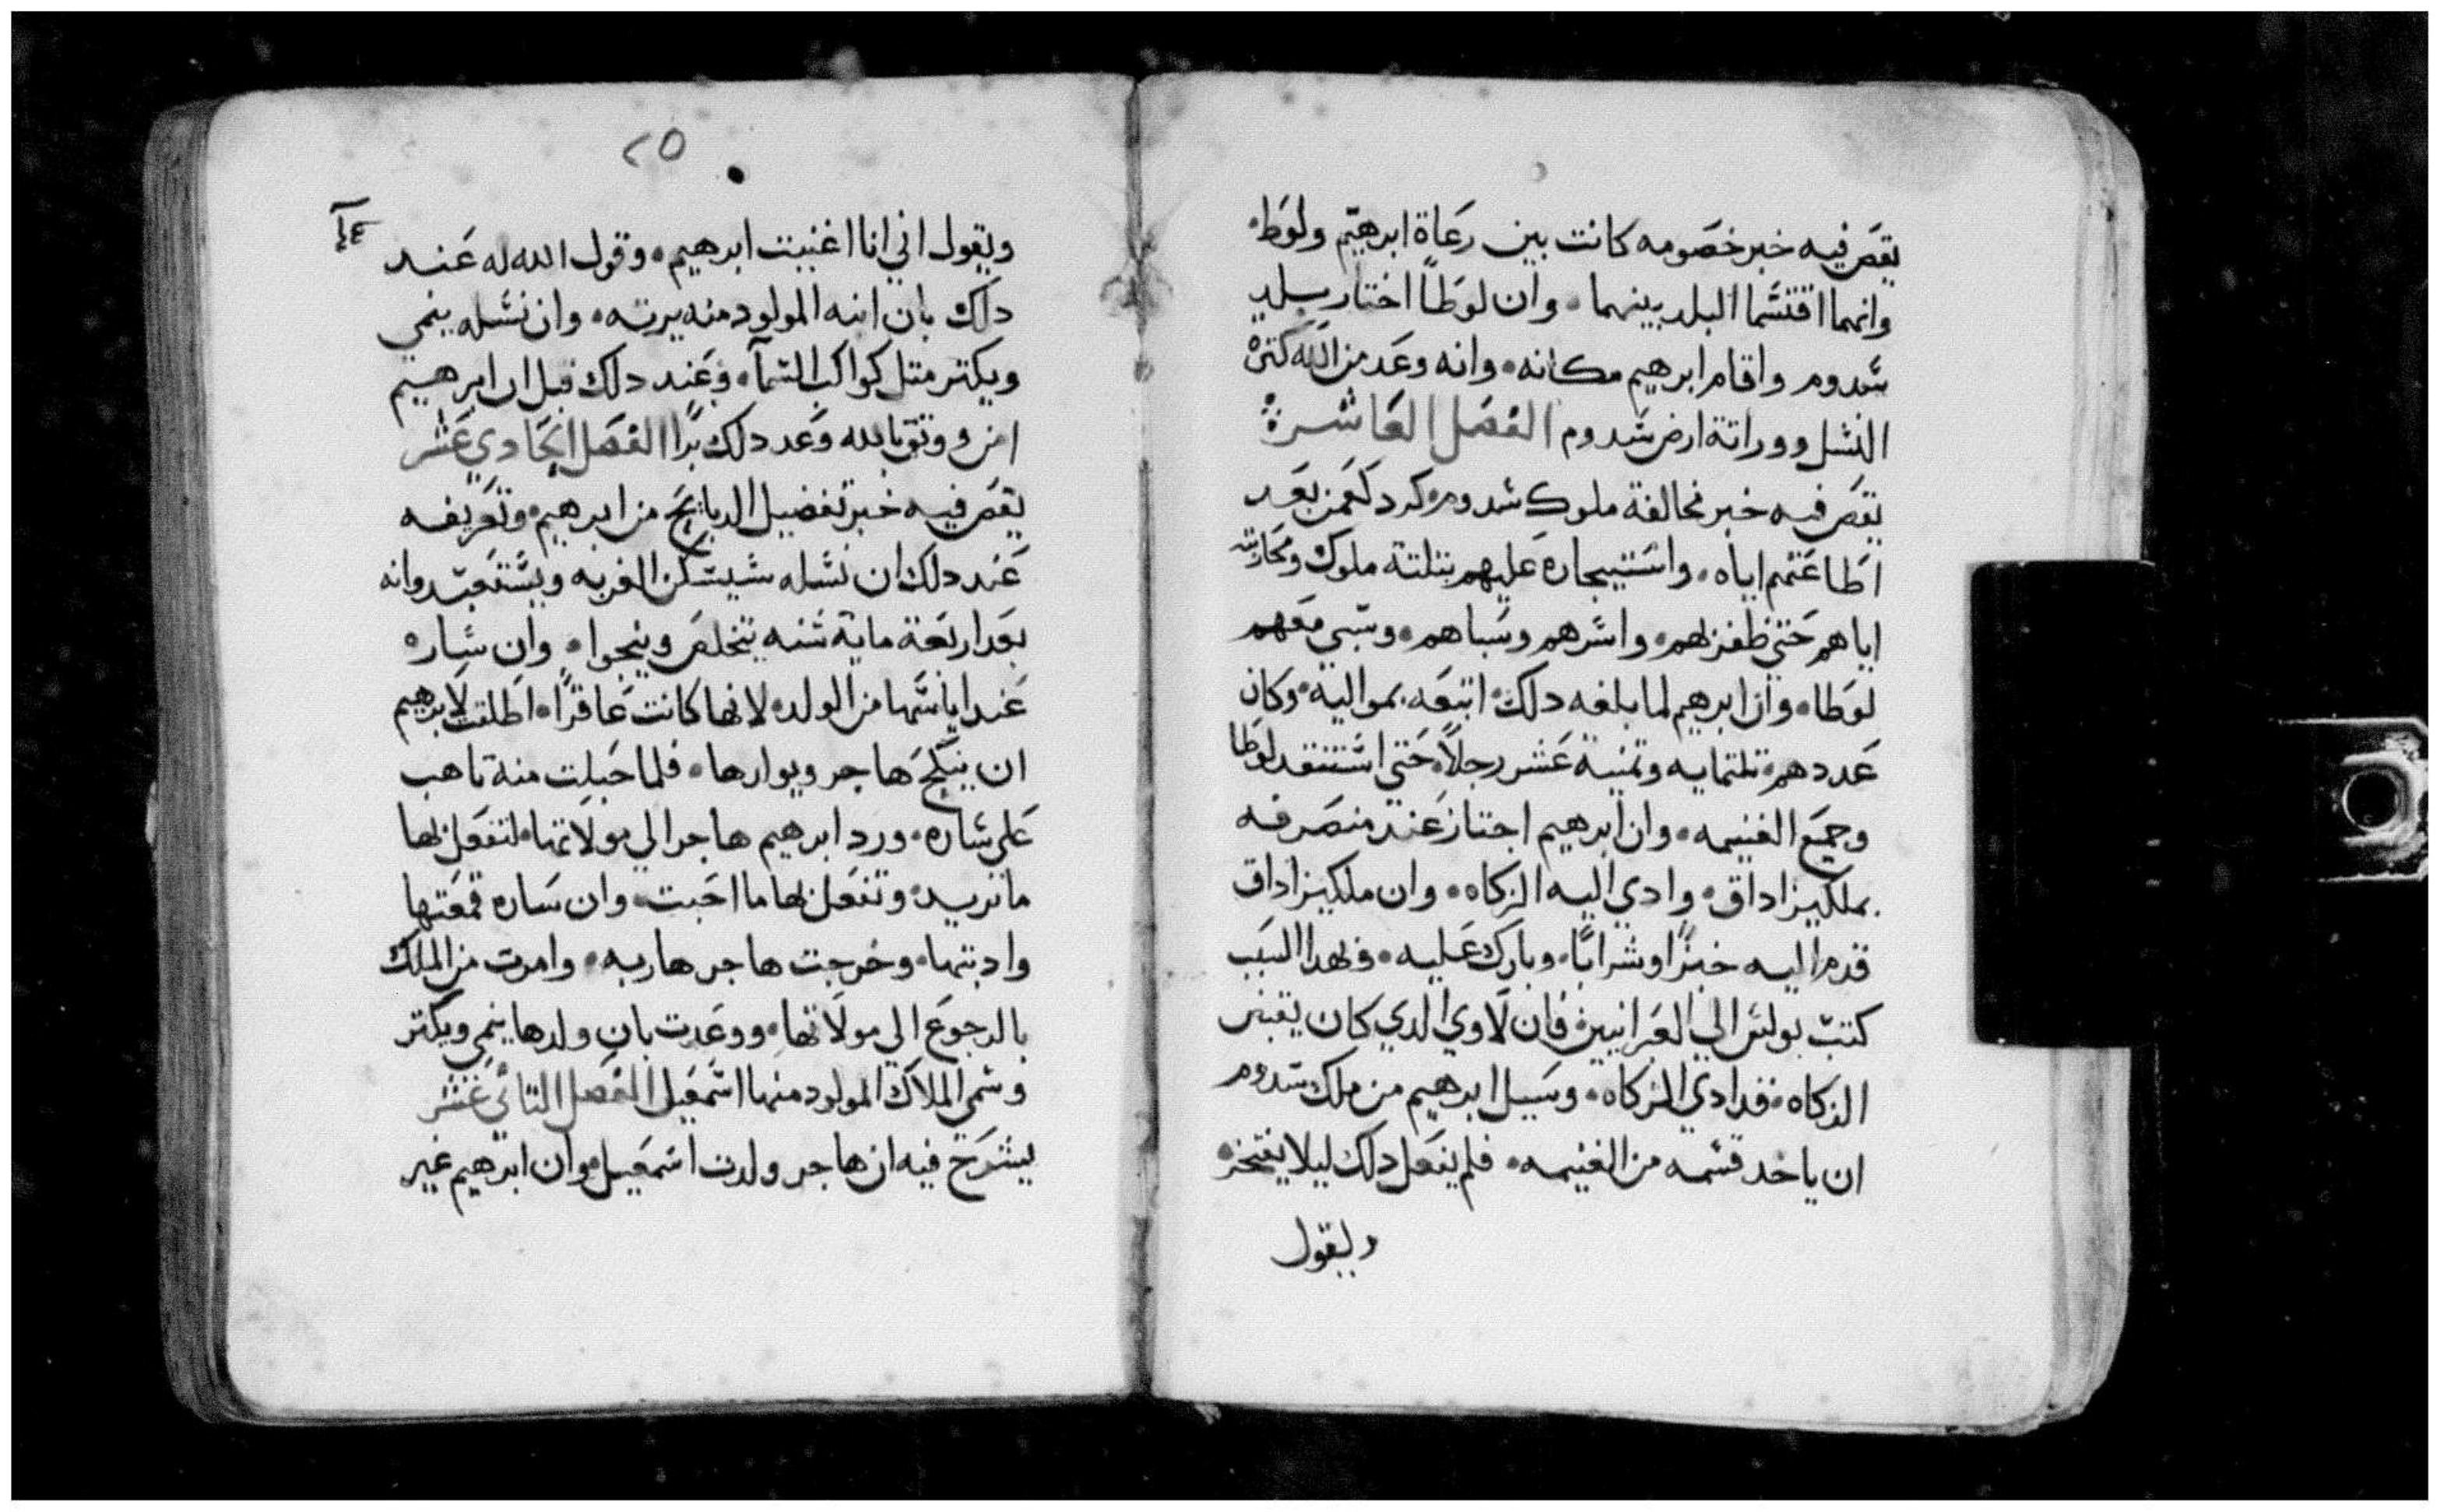 يقص فيه خبر خصومه كانت بين رعاة ابرهيم ولوط۰
وانهما اقتسما البلد بينهما ۰ وان لوطاً اختار بلد
سدوم واقام ابرهيم مكانه ۰ وانه وعد من الله كترة
النسل ووراتة ارض سدوم الفصل العاشرة
يقص فيه خبر مخالفة ملوك سدوم من بعد
اطاعتهم اياه ۰ واستيجاره عليهم بتلتة ملوك ومحاربته
اياهم حتي ظفر بهم ۰ واسرهم وسباهم ۰ وسبي معهم
لوطا ۰ وان ابرهيم لما بلغه دلك ۰ اتبعه بمواليه ۰ وكان
عددهم ۰ تلتمايه وتمنية عشر رجلاً ۰ حتي استنقد لوطا
وجميع الغنيمه ۰ وان ابرهيم اجتاز عند منصرفه
بملكيزاداق ۰ وادي اليه الزكاه ۰ وان ملكيزاداق
قدم اليه خبزًا وشرابًا ۰ وبارك عليه ۰ فلهدا السبب
كتب بولس الي العبرانيين فان لاوي الدي كان يقبض
الزكاه ۰ قد ادي الزكاه ۰ وسيل ابرهيم من ملك سدوم
ان ياخد قسمه من الغنيمه ۰ فلم يفعل دلك ليلا يفتخر ۰
ويقول
٢٥
ويقول اني انا اغنيت ابرهيم ۰ وقول الله له عند
دلك بان ابنه المولود منه يرته ۰ وان نسله ينمي
ويكتر متل كواكب السمآ ۰ وعند دلك قيل ان ابرهيم
امن ووتق بالله وعد دلك برًا الفصل الحادي عشر
يقص فيه خبر تفضيل الدبايح من ابرهيم ۰ وتعريفه
عند دلك ان نسله سيسكن الغربه ويستعبد وانه
بعد اربعة ماية سنه يتخلص وينجوا ۰ وان ساره
عند اياسها من الولد ۰ لانها كانت عاقرًا ۰ اطلقت لابرهيم
ان ينكح هاجر ويوارها ۰ فلما حبلت منه تاهب
علي ساره ۰ ورد ابرهيم هاجر الي مولاتها ۰ لتفعل بها
ما تريد ۰ وتفعل بها ما احبت ۰ وان ساره قمعتها
وادبتها ۰ وخرجت هاجر هاربه ۰ وامرت من الملك
بالرجوع الي مولاتها ۰ ووعدت بان ولدها ينمي ويكتر
وسمي الملاك المولود منها اسمعيل الفصل التاني عشر
يشرح فيه ان هاجر ولدت اسمعيل ۰ وان ابرهيم غير